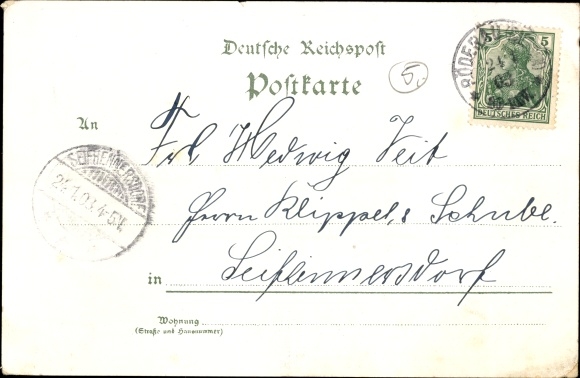 Deutsche Reichspost
Postkarte
5.
5
DEUTSCHES REICH
An
Frl Hedwig Veit
Herrn Klippel, & Schube.
SEIFHENNERSDORF
24.1.03.4-5N.
in Seifhennersdorf
Wohnung
(Straße und Hausnummer)